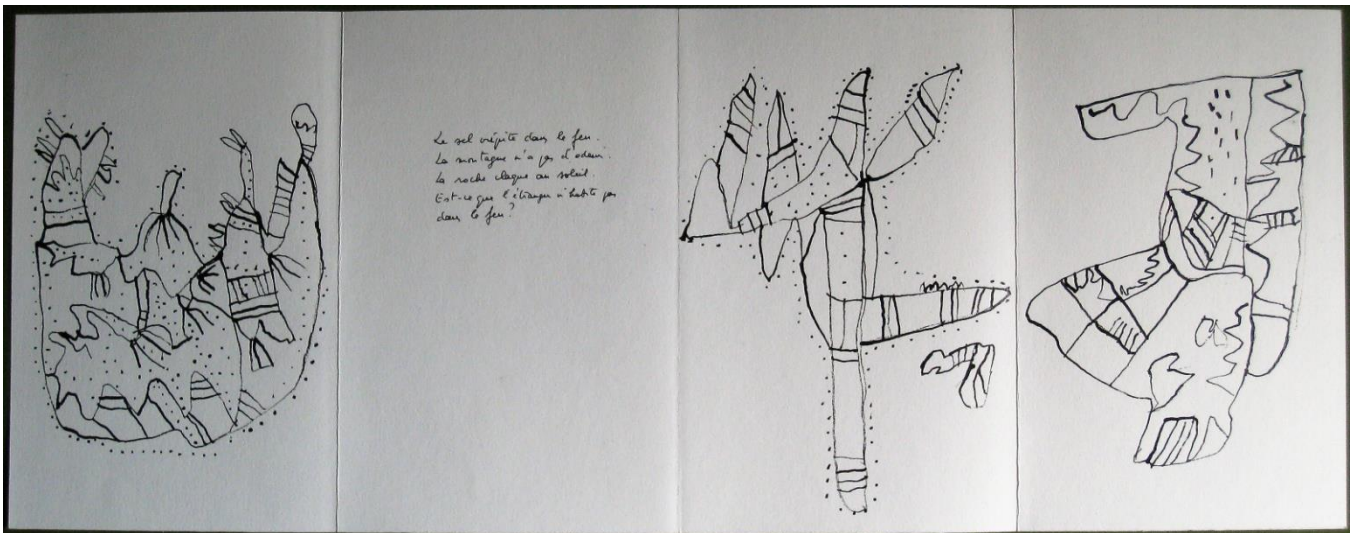 Le sel crépite dans le feu.
La montagne n'a pas d'odeur.
La roche claque au soleil.
Est-ce que l'étranger n'habite pas
dans le feu?